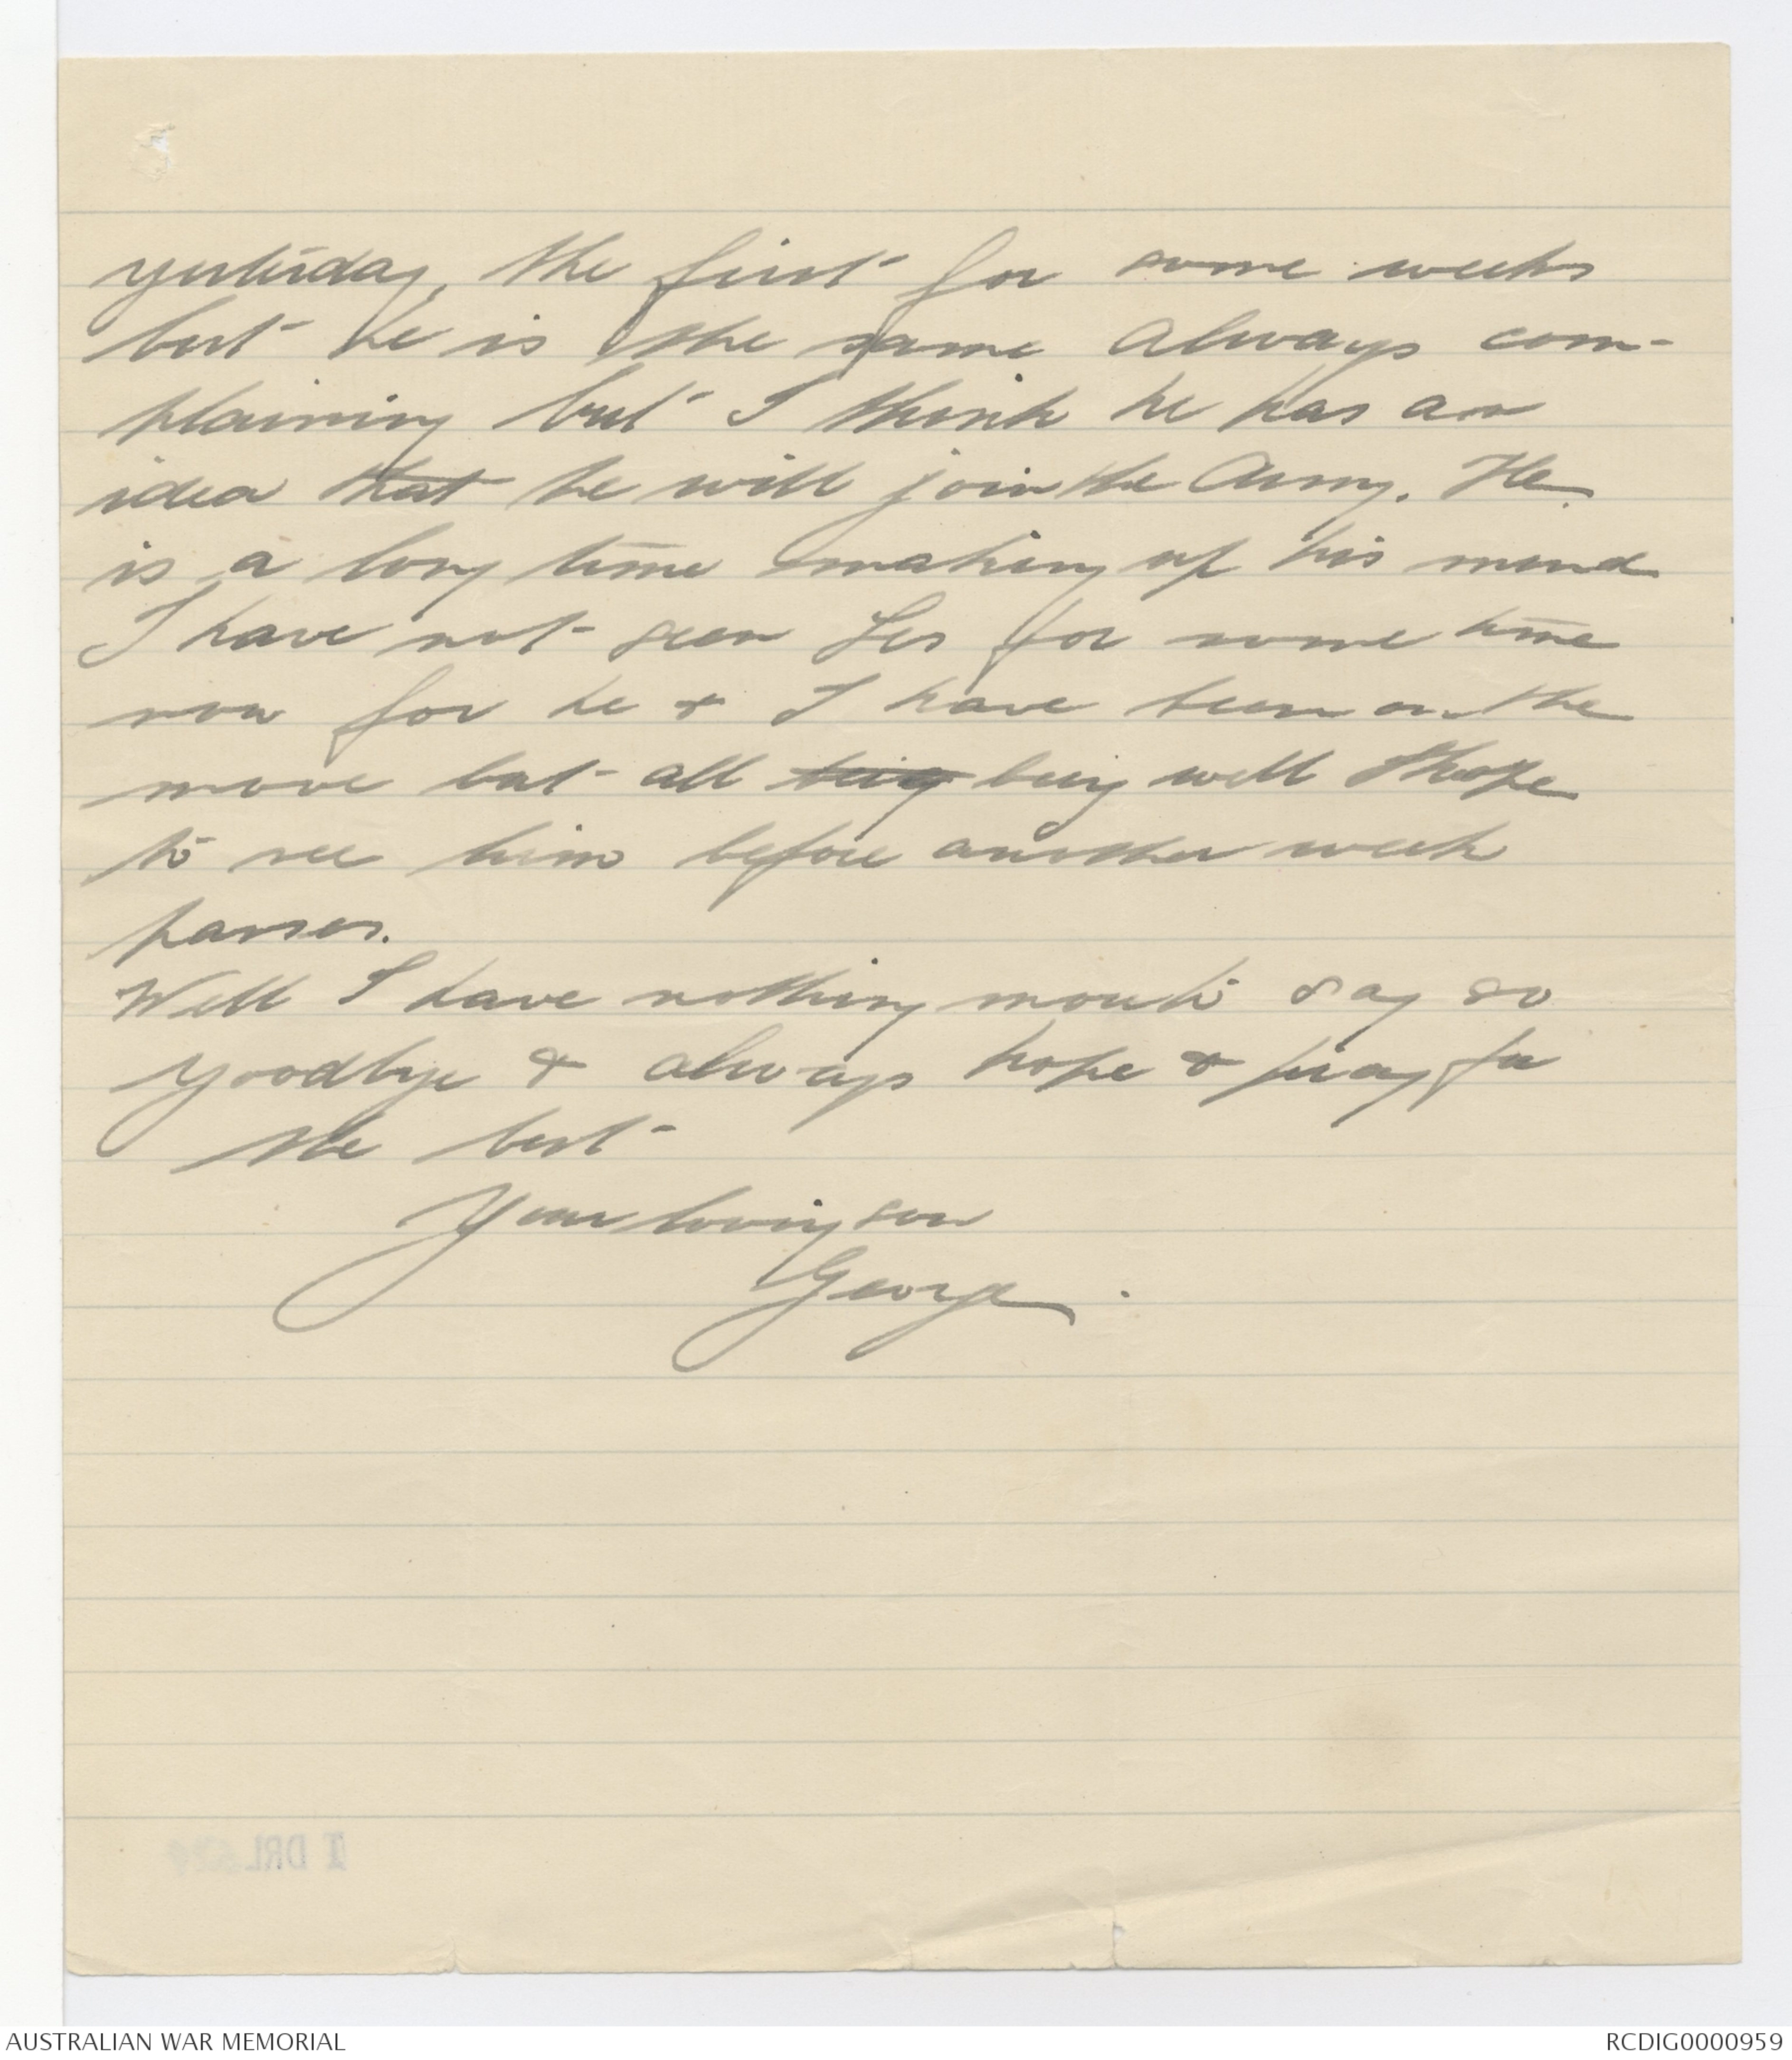 yesterday, the first for some weeks
but he is the same always com-
plaining but I think he has an
idea that he will join the Army. He
is a long time making up his mind
I have not seen Les for some time
now for he & I have been on the
move but all being being well I hope
to see him before another week
passes.
Well I have nothing more to say so
goodbye & always hope & pray for
the best
Your loving son
George.
DRL
AUSTRALIAN WAR MEMORIAL
RCDIG0000959